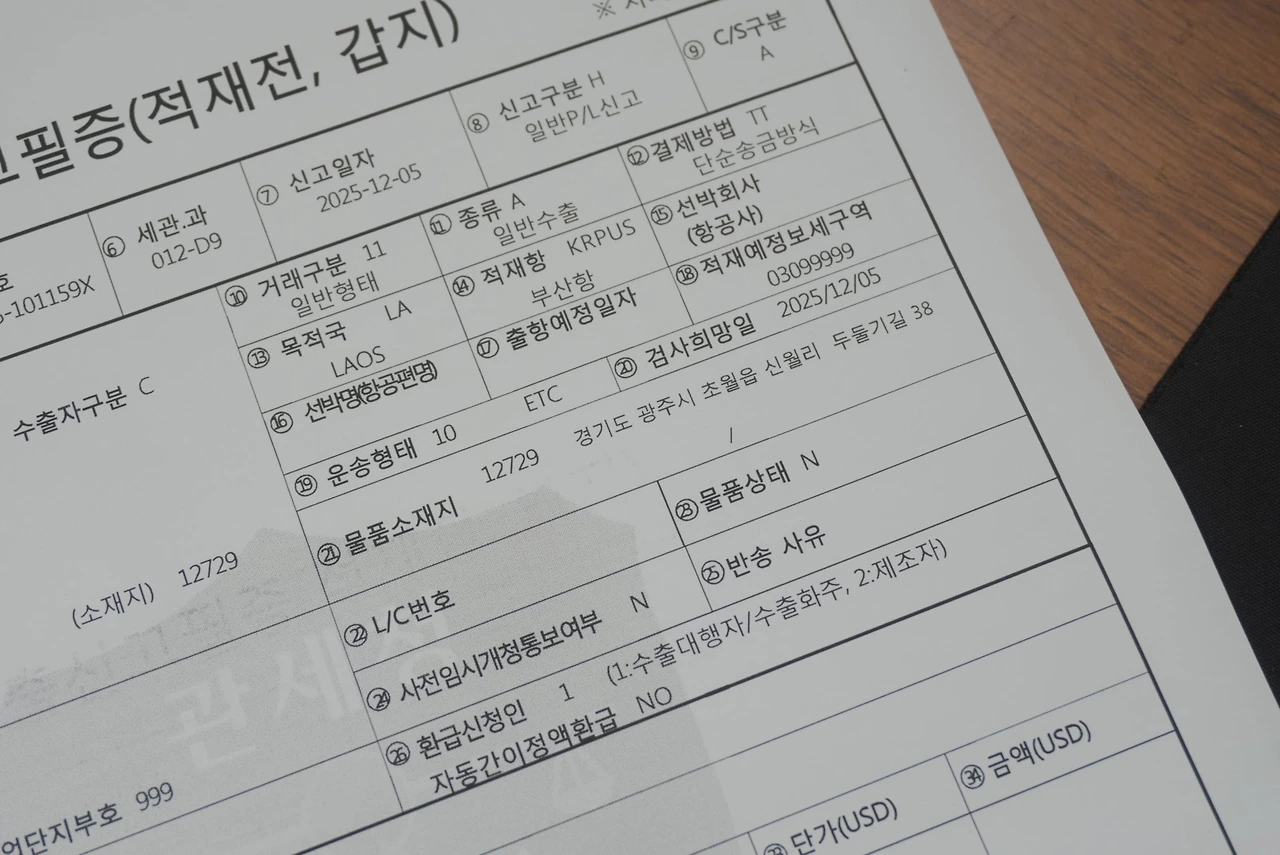 필증(적재전, 갑지)
⑥ 세관.과
012-D9
⑦ 신고일자
2025-12-05
⑧ 신고구분 H
일반P/L신고
⑨ C/S구분
A
-101159X
⑩ 거래구분 11
일반형태
⑪ 종류 A
일반수출
⑫ 결제방법 TT
단순송금방식
⑬ 목적국 LA
LAOS
⑭ 적재항 KRPUS
부산항
⑮ 선박회사
(항공사)
⑯ 선박명(항공편명)
⑰ 출항예정일자
⑱ 적재예정보세구역
03099999
⑲ 운송형태 10 ETC
⑳ 검사희망일 2025/12/05
수출자구분 C
(소재지) 12729
㉑ 물품소재지 12729 경기도 광주시 초월읍 신월리 두둘기길 38
/
㉒ L/C번호
㉓ 물품상태 N
㉔ 사전임시개청통보여부 N
㉕ 반송 사유
㉖ 환급신청인 1 (1:수출대행자/수출화주, 2:제조자)
자동간이정액환급 NO
관세청
업단지부호 999
㉝ 단가(USD)
㉞ 금액(USD)